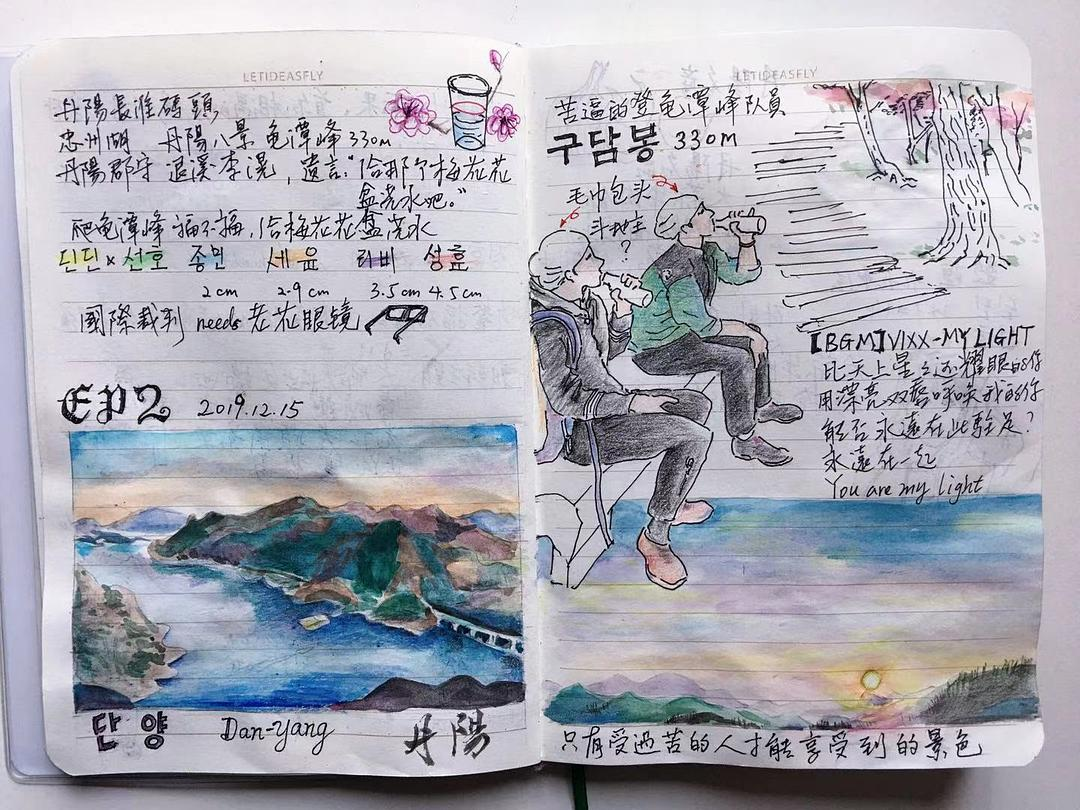 LETIDEASFLY
丹陽長淮碼頭
忠州湖 丹陽八景 龟潭峰 330m
丹陽郡守 退溪·李滉，遺言:“给那个梅花花
盆浇水吧。”
爬龟潭峰 福不福，给梅花花盆浇水
딘딘×선호 종민 세윤 라비 성효
2cm 2.9cm 3.5cm 4.5cm
國際裁判 needs 老花眼镜
EP2 2019.12.15
단양 Dan-Yang 丹陽
LETIDEASFLY
苦逼的登龟潭峰队員
구담봉 330m
毛巾包头
斗地主
?
【BGM】VIXX-MY LIGHT
比天上星星还耀眼的你
用漂亮双唇呼唤我的你
能否永遠在此駐足?
永遠在一起
You are my light
只有受過苦的人才能享受到的景色